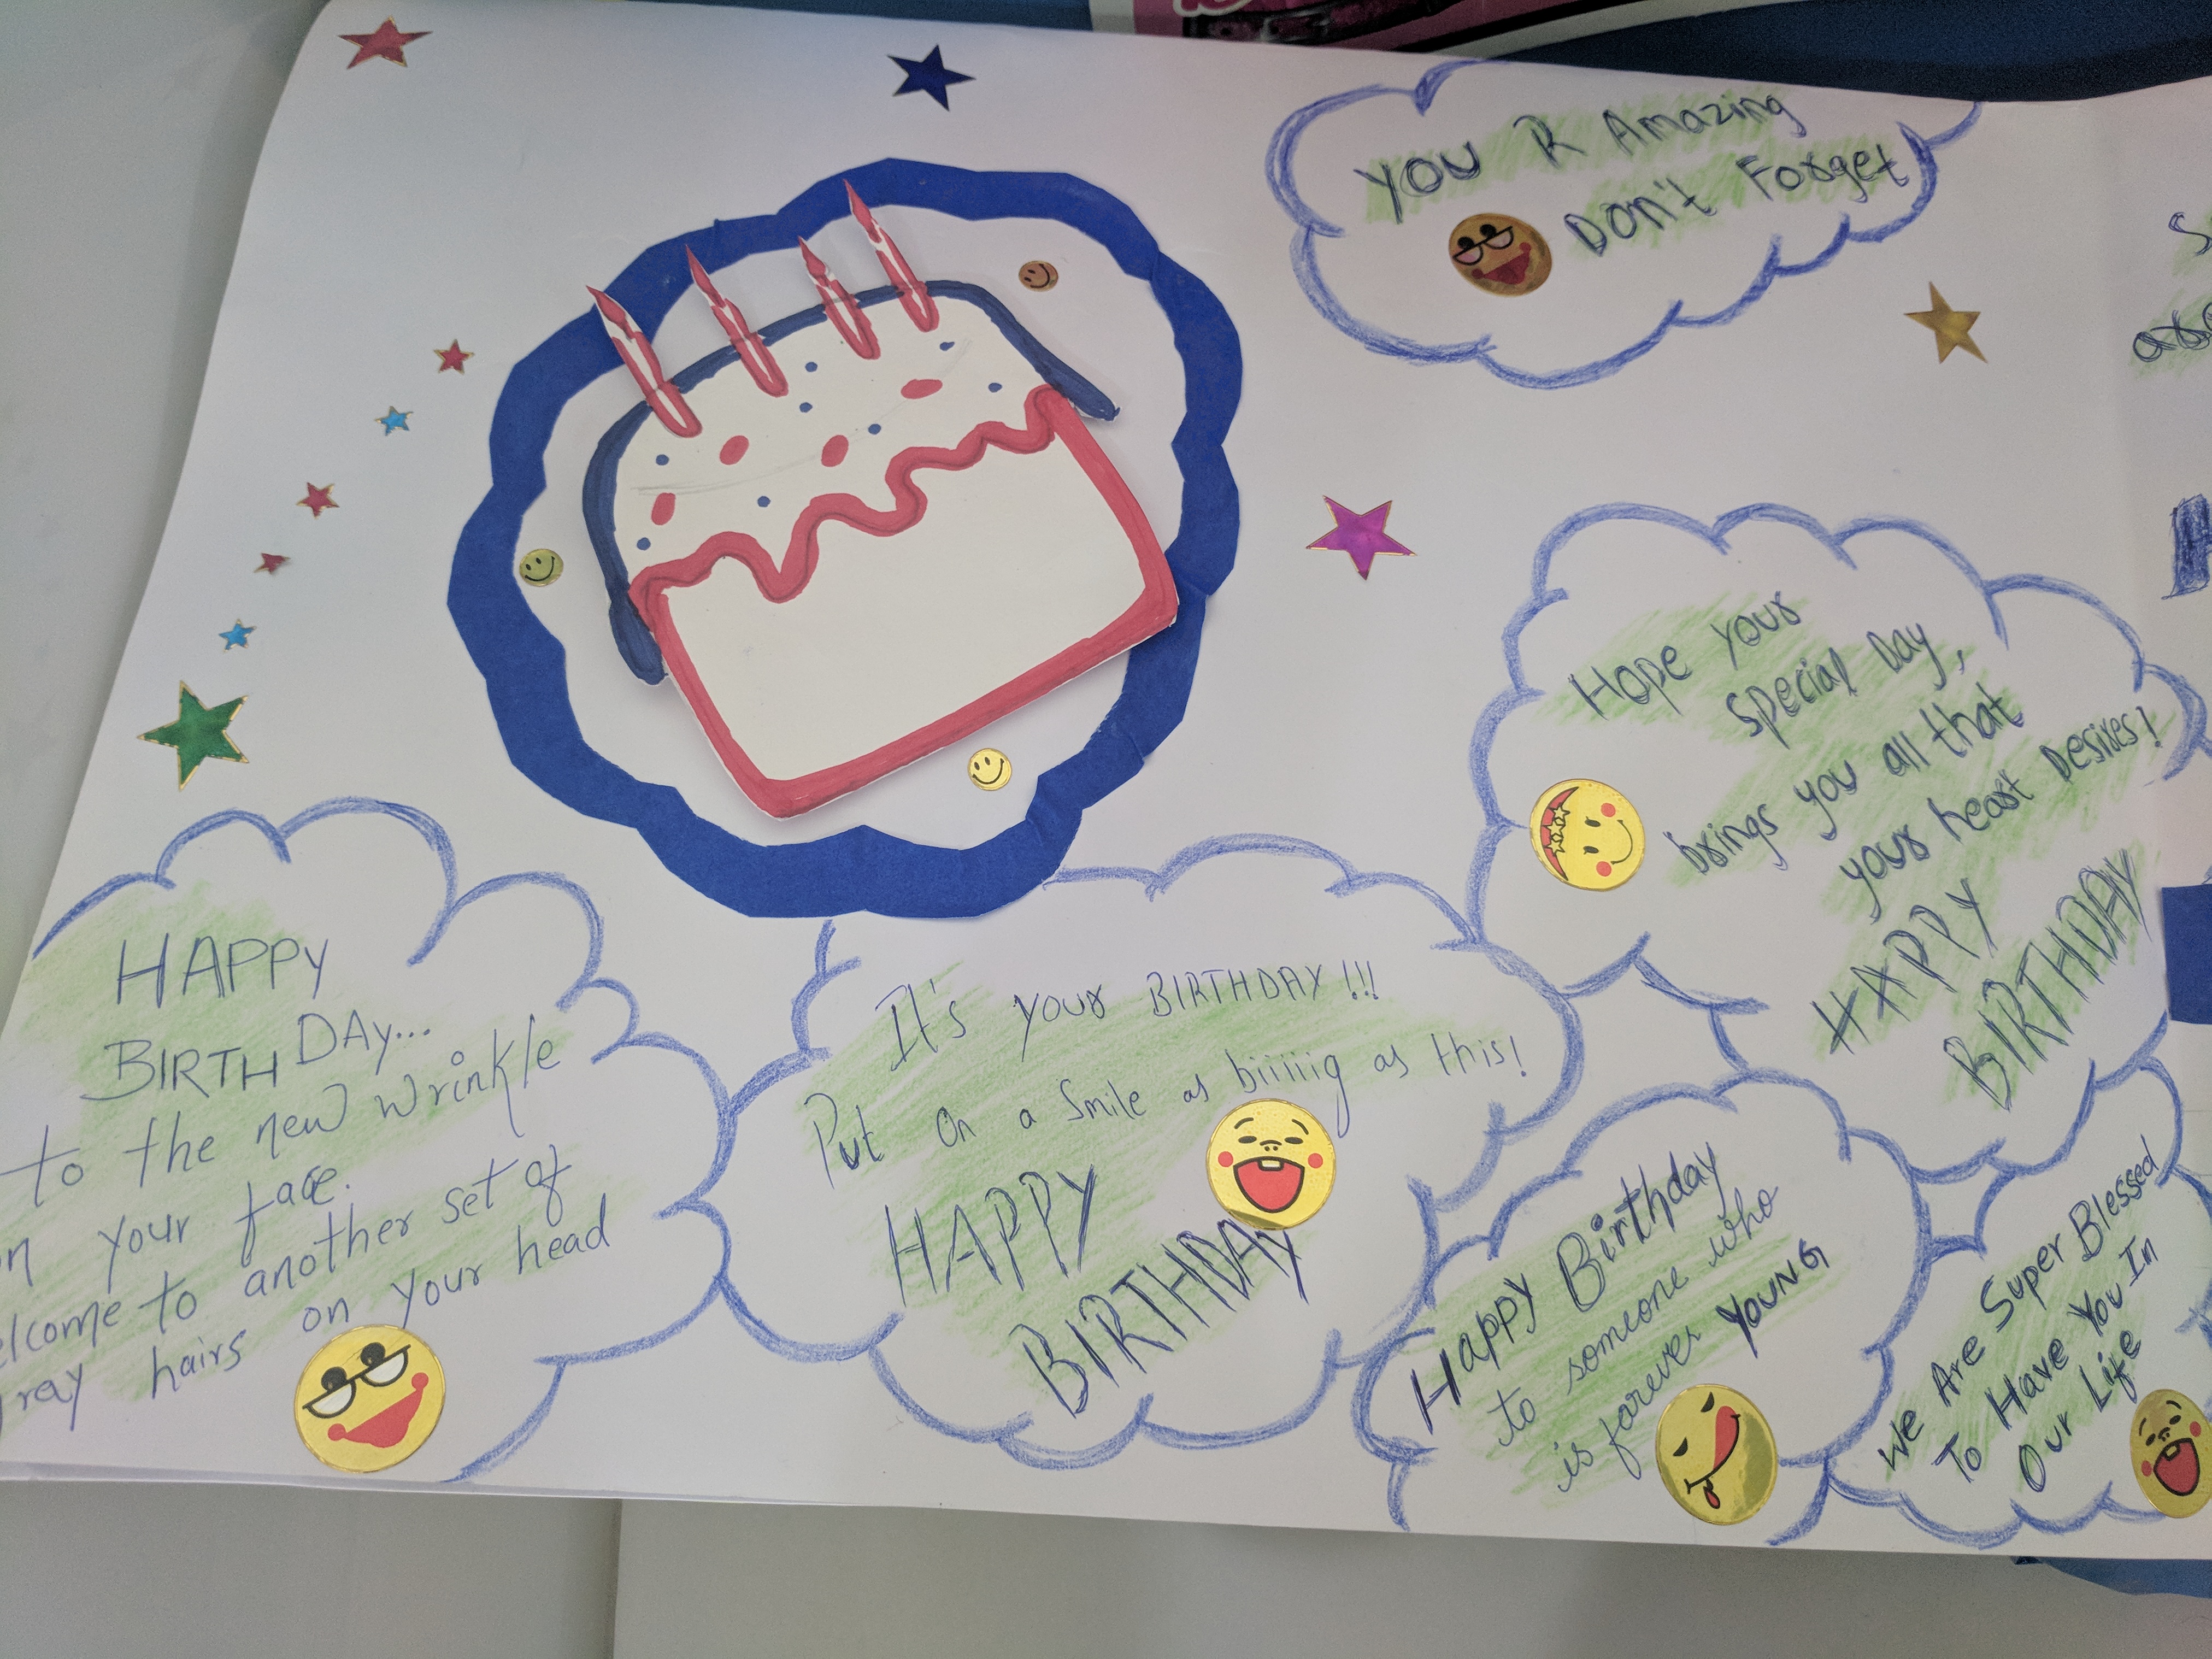 You R Amazing
Don't Forget
Hope your
special Day,
brings you all that
your heart Desires!
HAPPY
BIRTHDAY
HAPPY
BIRTHDAY...
to the new wrinkle
on your face.
elcome to another set of
ray hairs on your head
It's your BIRTHDAY!!!
Put on a smile as biiiiig as this!
HAPPY
BIRTHDAY
Happy Birthday
to someone who
is forever YOUNG
We Are Super Blessed
To Have You In
Our Life